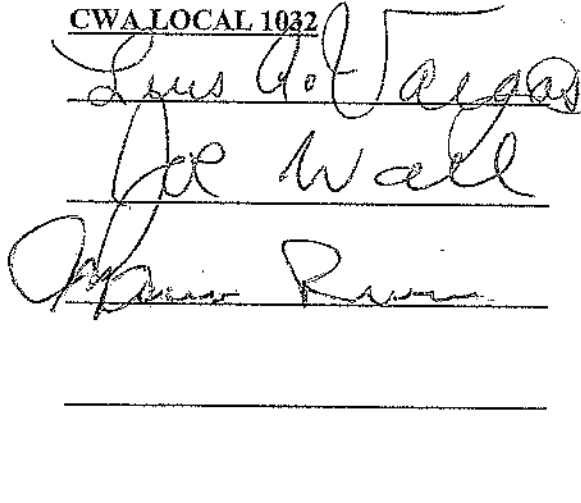 CWA LOCAL 1032
Luis A. Vargas
Joe Wall